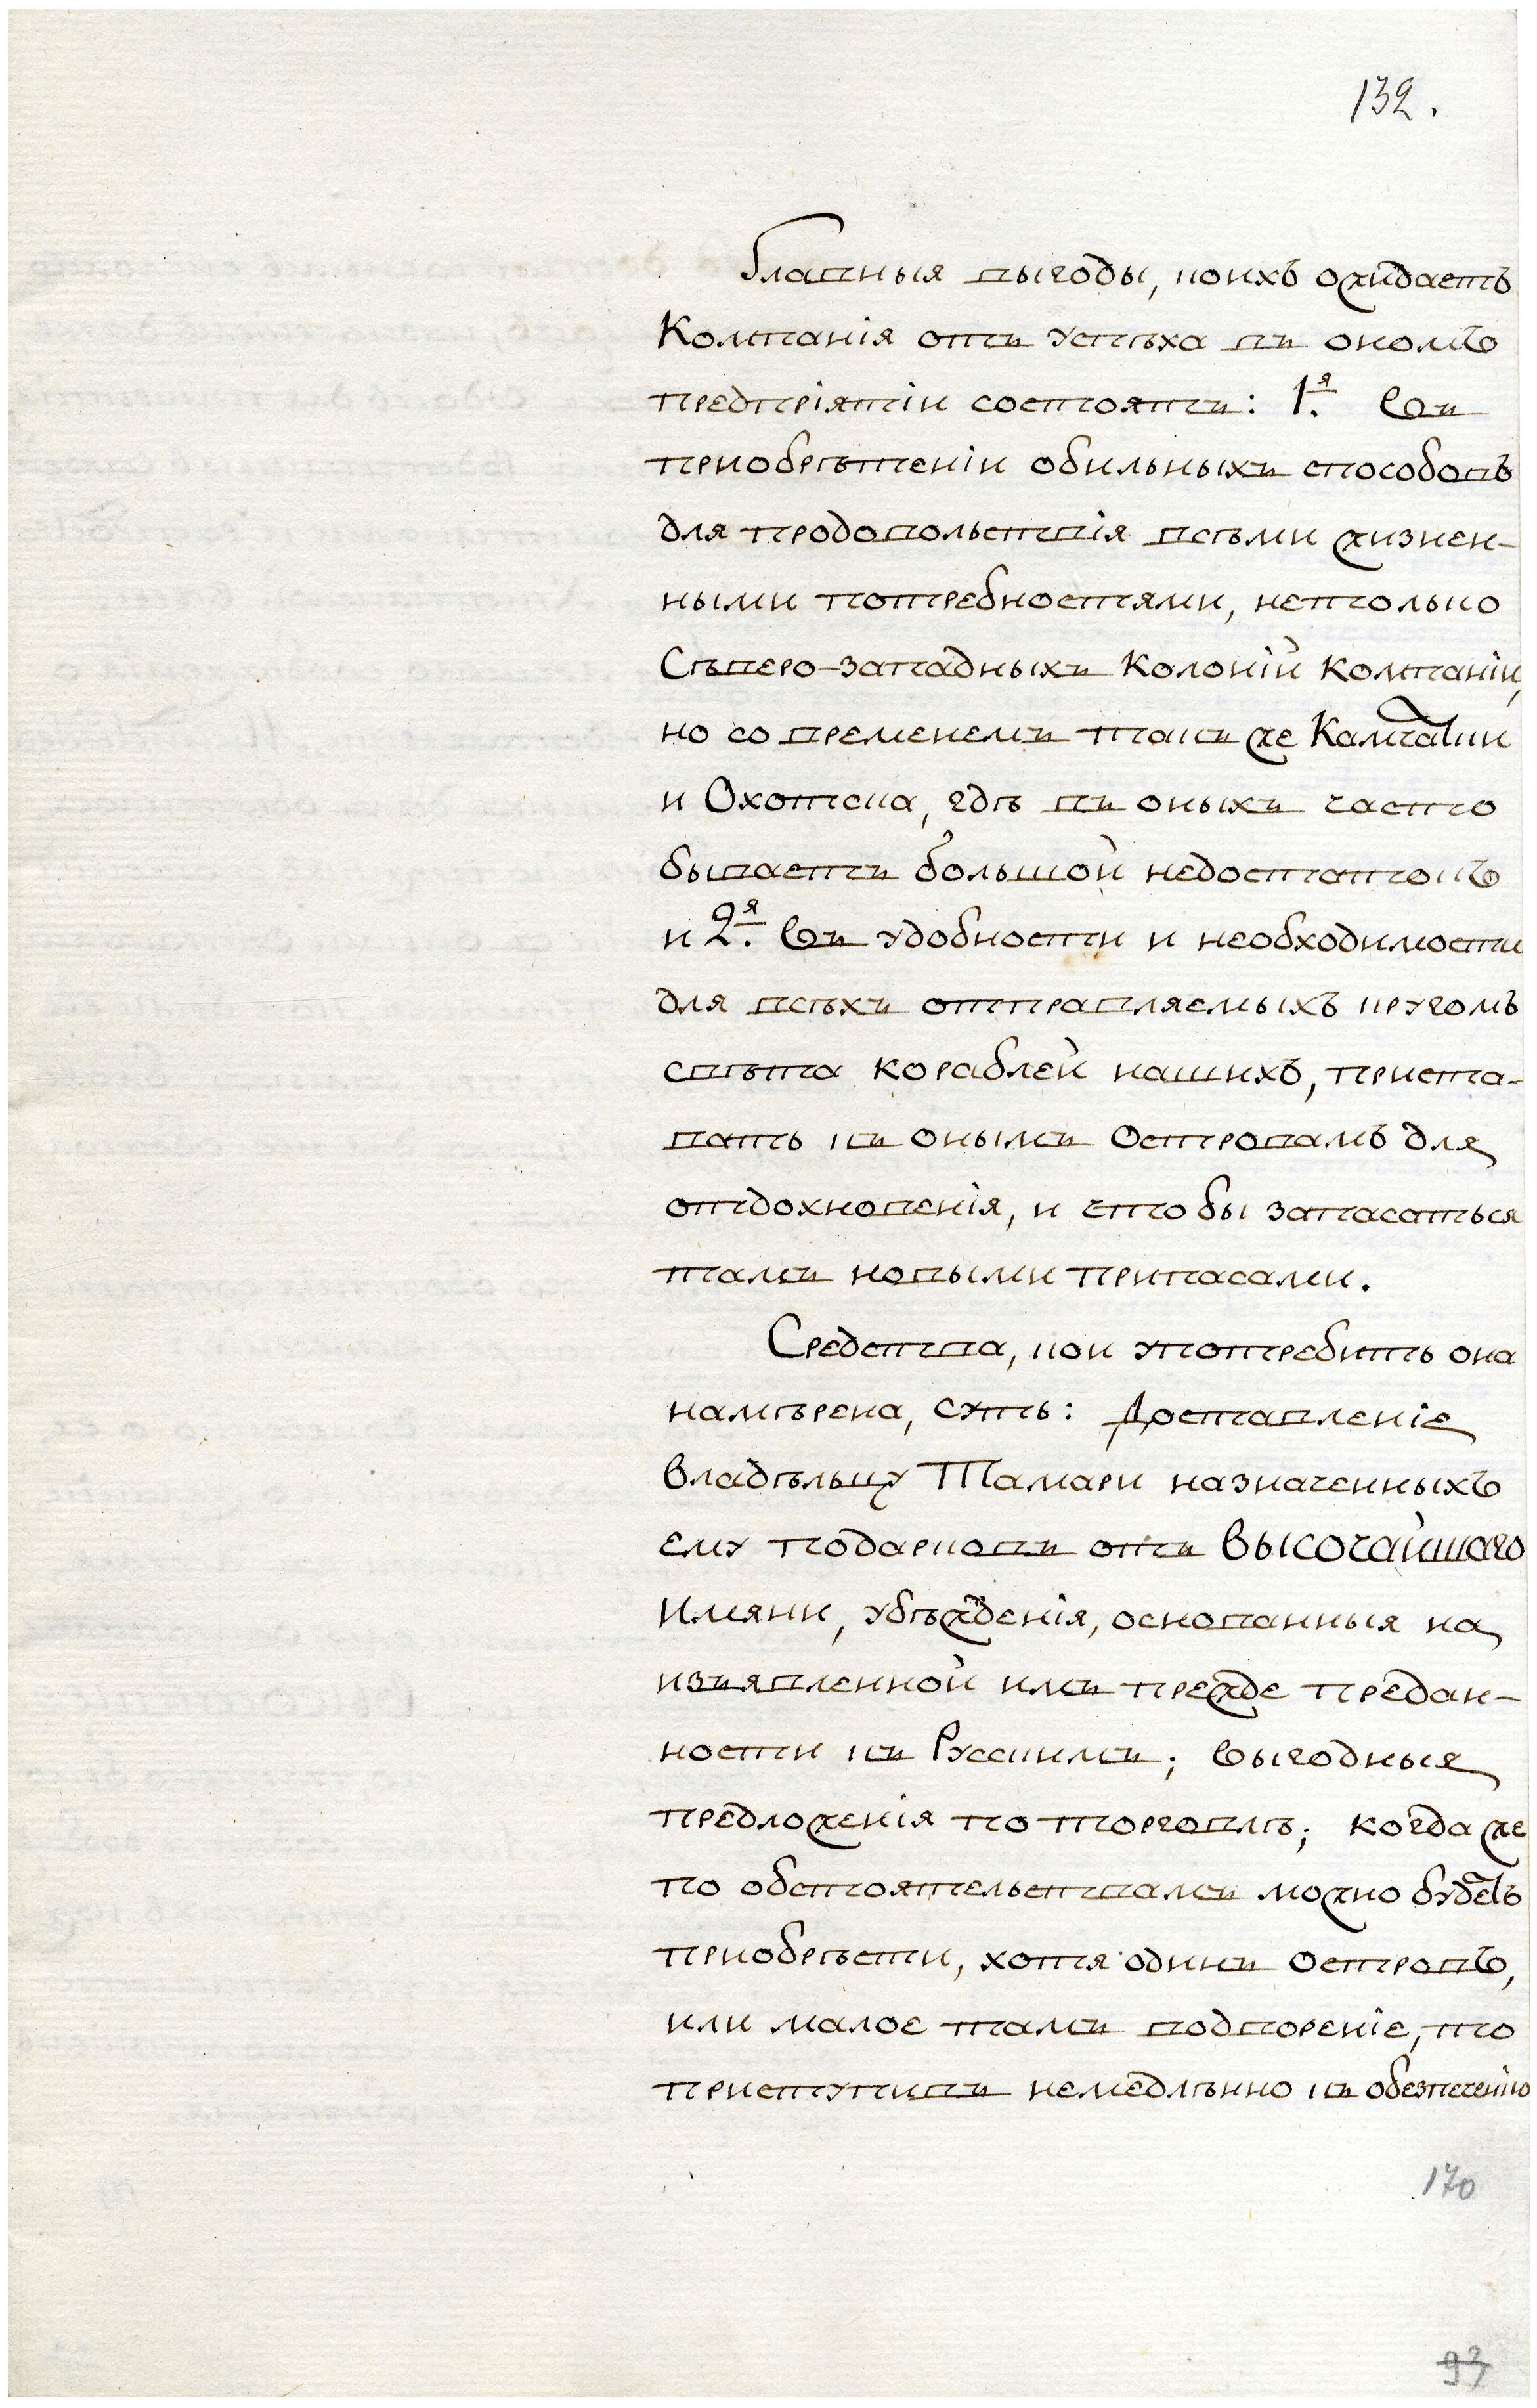 132.
Главныя выгоды, коихъ ожидаетъ
Компанія отъ успѣха въ ономъ
предпріятіи состоятъ: 1.я Въ
приобрѣтеніи обильныхъ способовъ
для продовольствія всѣми жизнен-
ными потребностями, нетолько
Сѣверо-западныхъ Колоній Компаніи,
но со временемъ такъ же Камчатки
и Охотска, гдѣ въ оныхъ часто
бываетъ большой недостатокъ
и 2.я Въ удобности и необходимости
для всѣхъ отправляемыхъ кругомъ
свѣта кораблей нашихъ, приста-
вать къ онымъ Островамъ для
отдохновенія, и что бы запасаться
тамъ новыми припасами.
Средства, кои употребить она
намѣрена, суть: Доставленіе
Владѣльцу Тамари назначенныхъ
ему подарковъ отъ ВЫСОЧАЙШАГО
Имяни, убѣжденія, основанныя на
изъявленной имъ прежде предан-
ности къ Русскимъ; Выгодныя
предложенія по торговлѣ; когда же
по обстоятельствамъ можно будетъ
приобрѣсти, хотя одинъ Островъ,
или малое тамъ водвореніе, то
приступивъ немедлѣнно къ обезпеченію
170
93